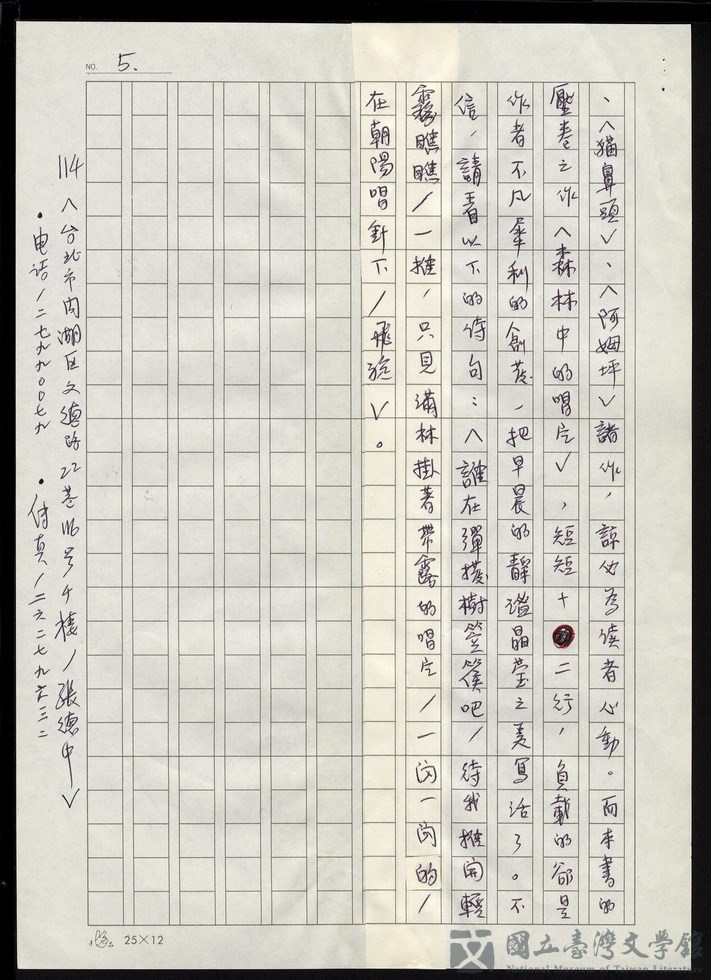 NO. 5.
、〈貓鼻頭〉、〈阿姆坪〉諸作，諒必為讀者心動。而本書的
壓卷之作〈森林中的唱片〉，短短十二行，負載的卻是
作者不凡犀利的創意，把早晨的靜謐晶瑩之美寫活了。不
信，請看以下的詩句：〈誰在彈撥樹箜篌吧／待我推開輕
霧瞧瞧／一推，只見滿林掛著帶露的唱片／一閃一閃的／
在朝陽唱針下／飛旋〉。
114〈台北市內湖區文德路22巷116号4樓／張德中〉
•电话／二七九九００七九 •傳真／二六二七九六三二
25×12
國立臺灣文學館
National Museum of Taiwan Literature